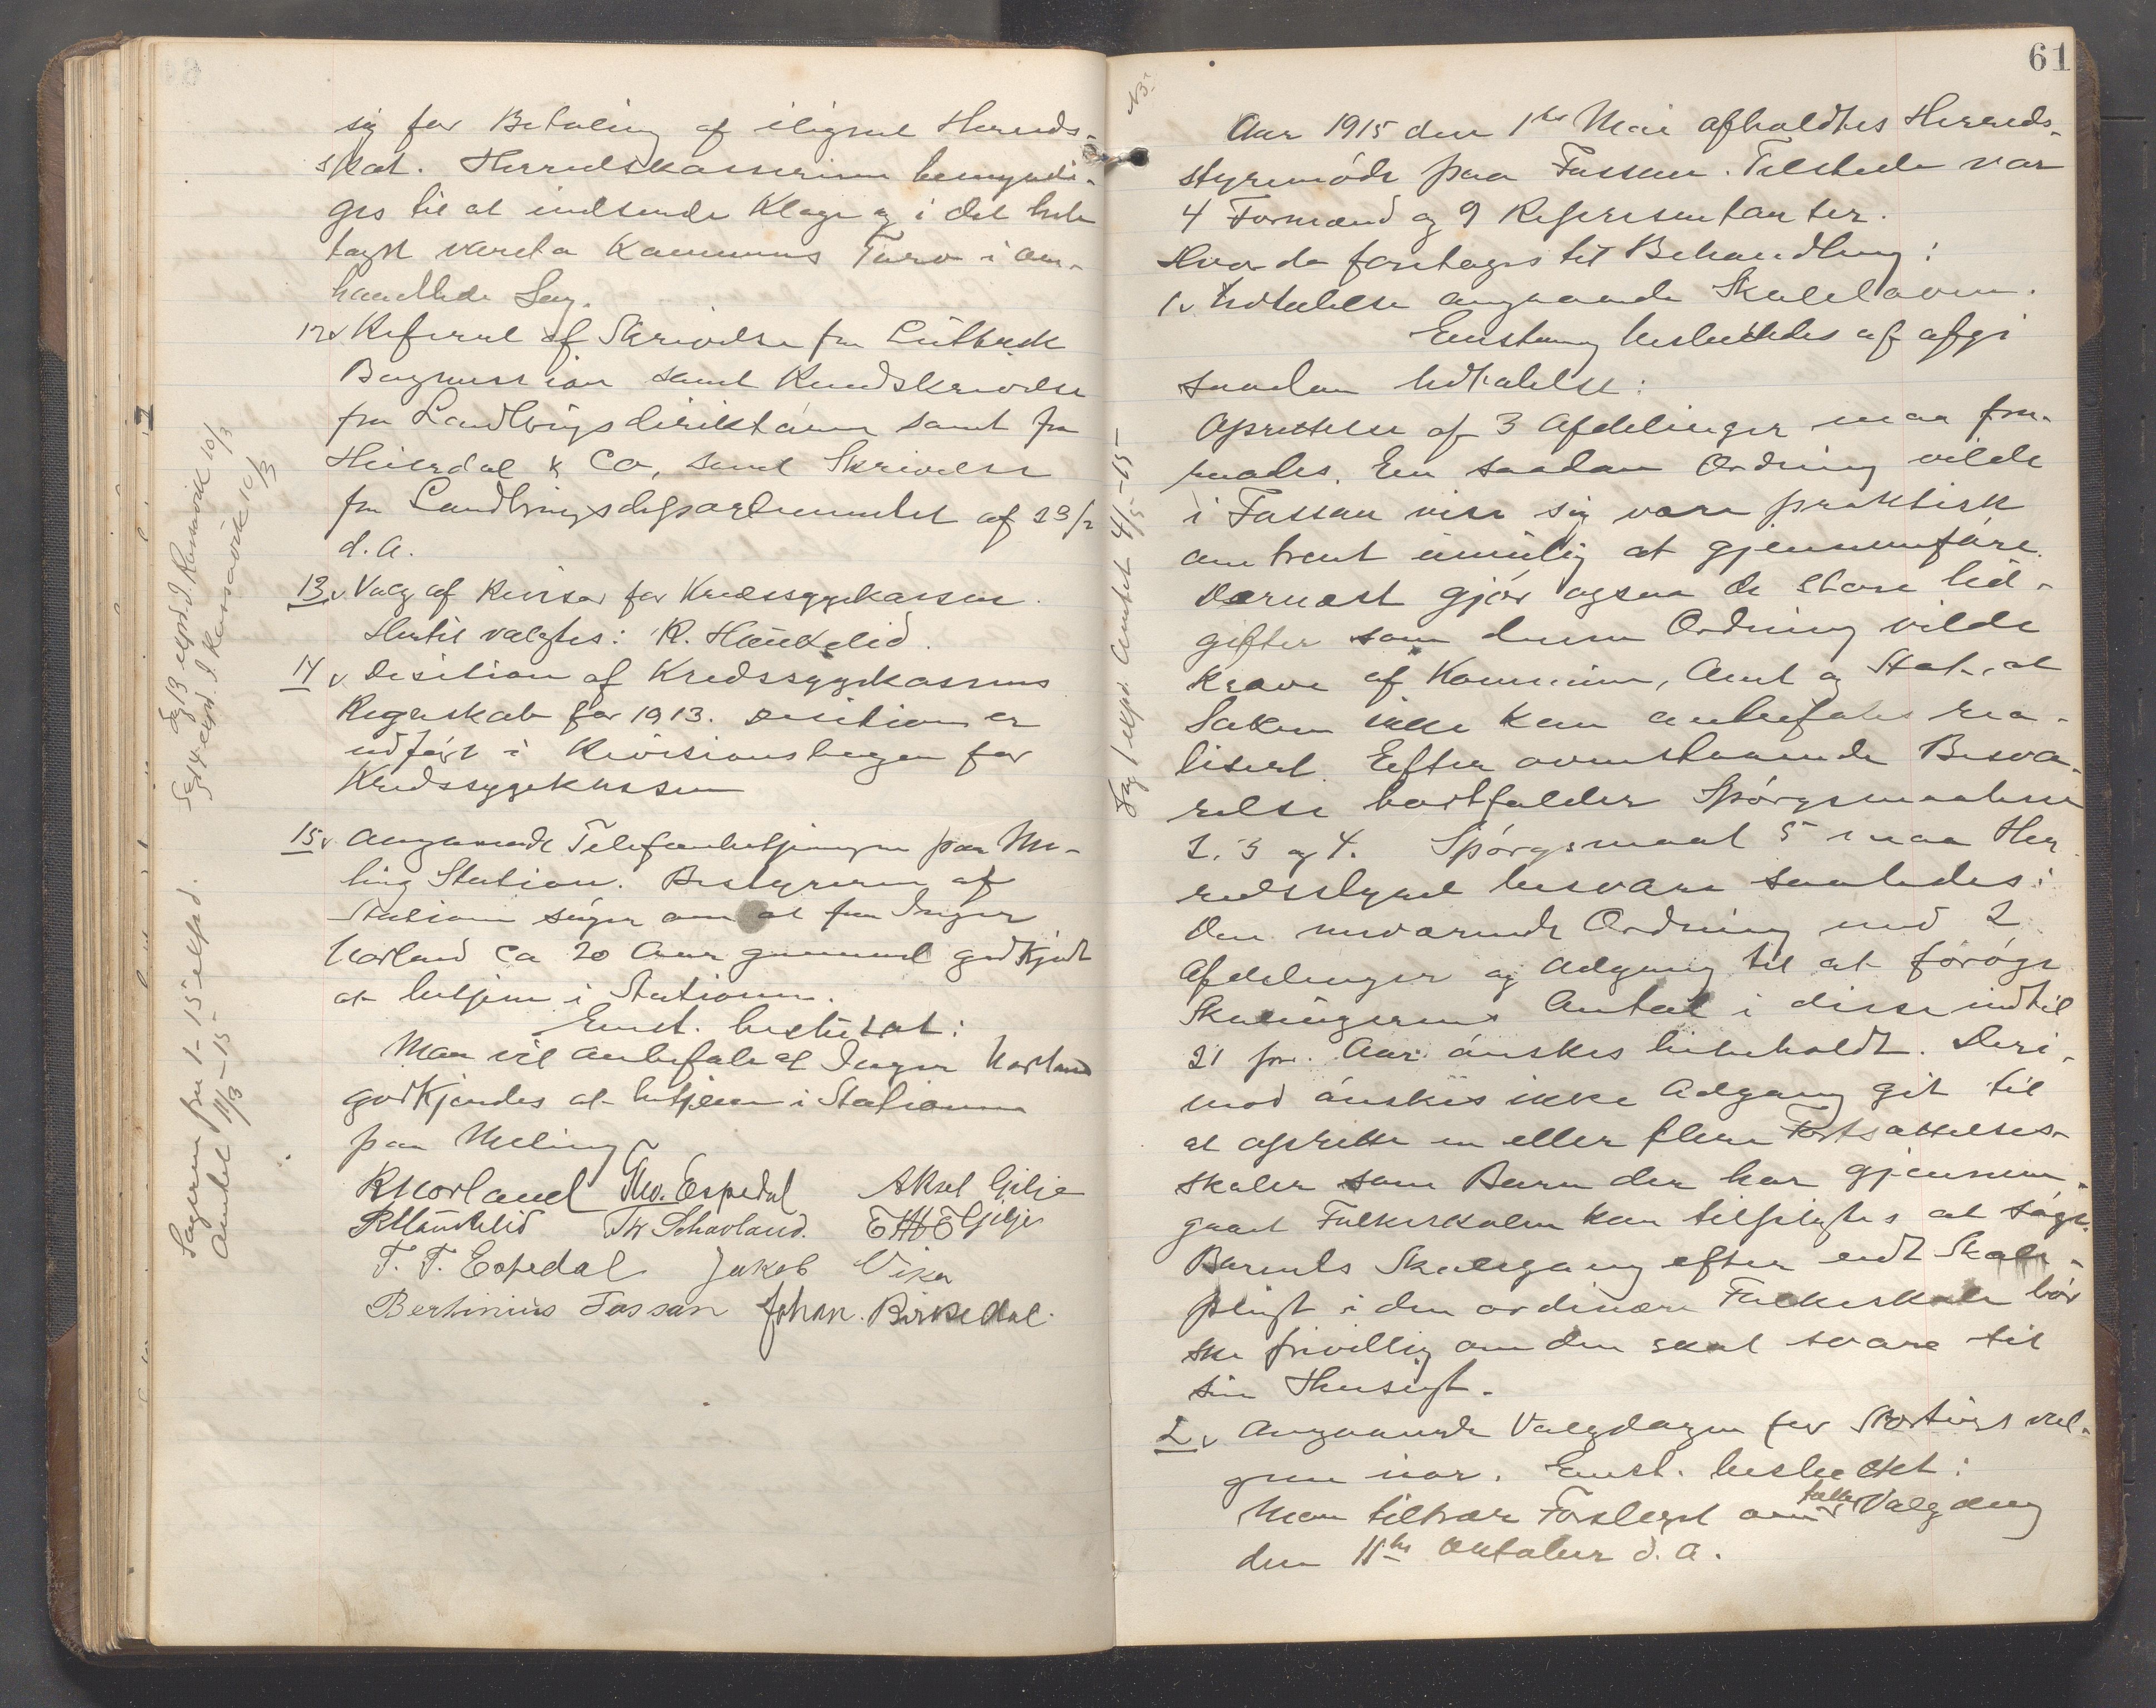 sig for Betaling af ilignet Herreds-
skat. Herredskassereren bemyndi-
ges til at indsende Klage og i det hele
taget vareta Kommunens Tarv i om-
handlede Sag.
12 Referat af Skrivelse fra Lütbæk
samt Rundskrivelse
fra Landbrugsdirektøren samt fra
Heierdal & Co, samt Skrivelse
fra Landbrugsdepartementet af 23/2
d. A.
13 Valg af Revisor for Kredssygekassen.
Hertil valgtes: R. Haukelid.
14 Desition af Kredssygekassens
Regnskab for 1913. Desitionen er
udført i Revisionsbogen for
Kredssygekassen
15 Angaaende Telefonbetjeningen paa Me-
ling Station. Bestyreren af
Stationen søger om at faa Inger
Norland ca 20 Aar gammel godkjendt
at betjene i Stationen.
Enst. besluttet:
Man vil anbefale at Inger Norland
godkjendes at betjene i Stationen
paa Meling
R Norland Thv. Espedal Aksel Gilje
R Haukelid Th Schavland. E Gilje
T. T. Espedal Jakob Vika
Bertinius Fossan Johan. Birkedal.
Sag 13 expd. J. Ramsvik 10/3
Sag 14 expd. J. Ramsvik 10/3
Sagerne fra 1-15 expd.
Amtet 11/3-15
61
Aar 1915 den 1ste Mai afholdtes Herreds-
styremøde paa Fossan. Tilstede var
4 Formænd og 9 Representanter.
Hvor da foretages til Behandling:
1 Udtalelse angaaende Skoleloven.
Enstemmig besluttedes at afgi
saadan Udtalelse:
Oprettelse af 3 Afdelinger maa fra-
raades. En saadan Ordning vilde
i Fossan vise sig være praktisk
omtrent umulig at gjennemføre.
Dernæst gjør ogsaa de store Ud-
gifter som denne Ordning vilde
kræve af Kommune, Amt og Stat, at
Saken ikke kan anbefales rea-
lisert. Efter ovenstaaende Besva-
relse bortfalder Spørgsmaalene
2. 3 og 4. Spørgsmaal 5 maa Her-
redsstyret besvare saaledes:
Den nuværende Ordning med 2
Afdelinger og Adgang til at forøge
Skoleugernes Antal i disse indtil
21 for. Aar ønskes bibeholdt. Deri-
mod ønskes ikke Adgang git til
at oprette en eller flere Fortsættelses-
skoler som Barn der har gjennem-
gaaet Folkeskolen kan tilpligtes at søge.
Barnets Skolegang efter endt Skole-
pligt i den ordinære Folkeskole bør
ske frivillig om den skal svare til
sin Hensigt.
2 Angaaende Valgdagen for Stortingsval-
gene iaar. Enst. besluttet:
Man tiltræder Forslaget om fælles Valgdag
den 11te Oktober d. A.
Sag 1 expd. Amtet 4/5-15